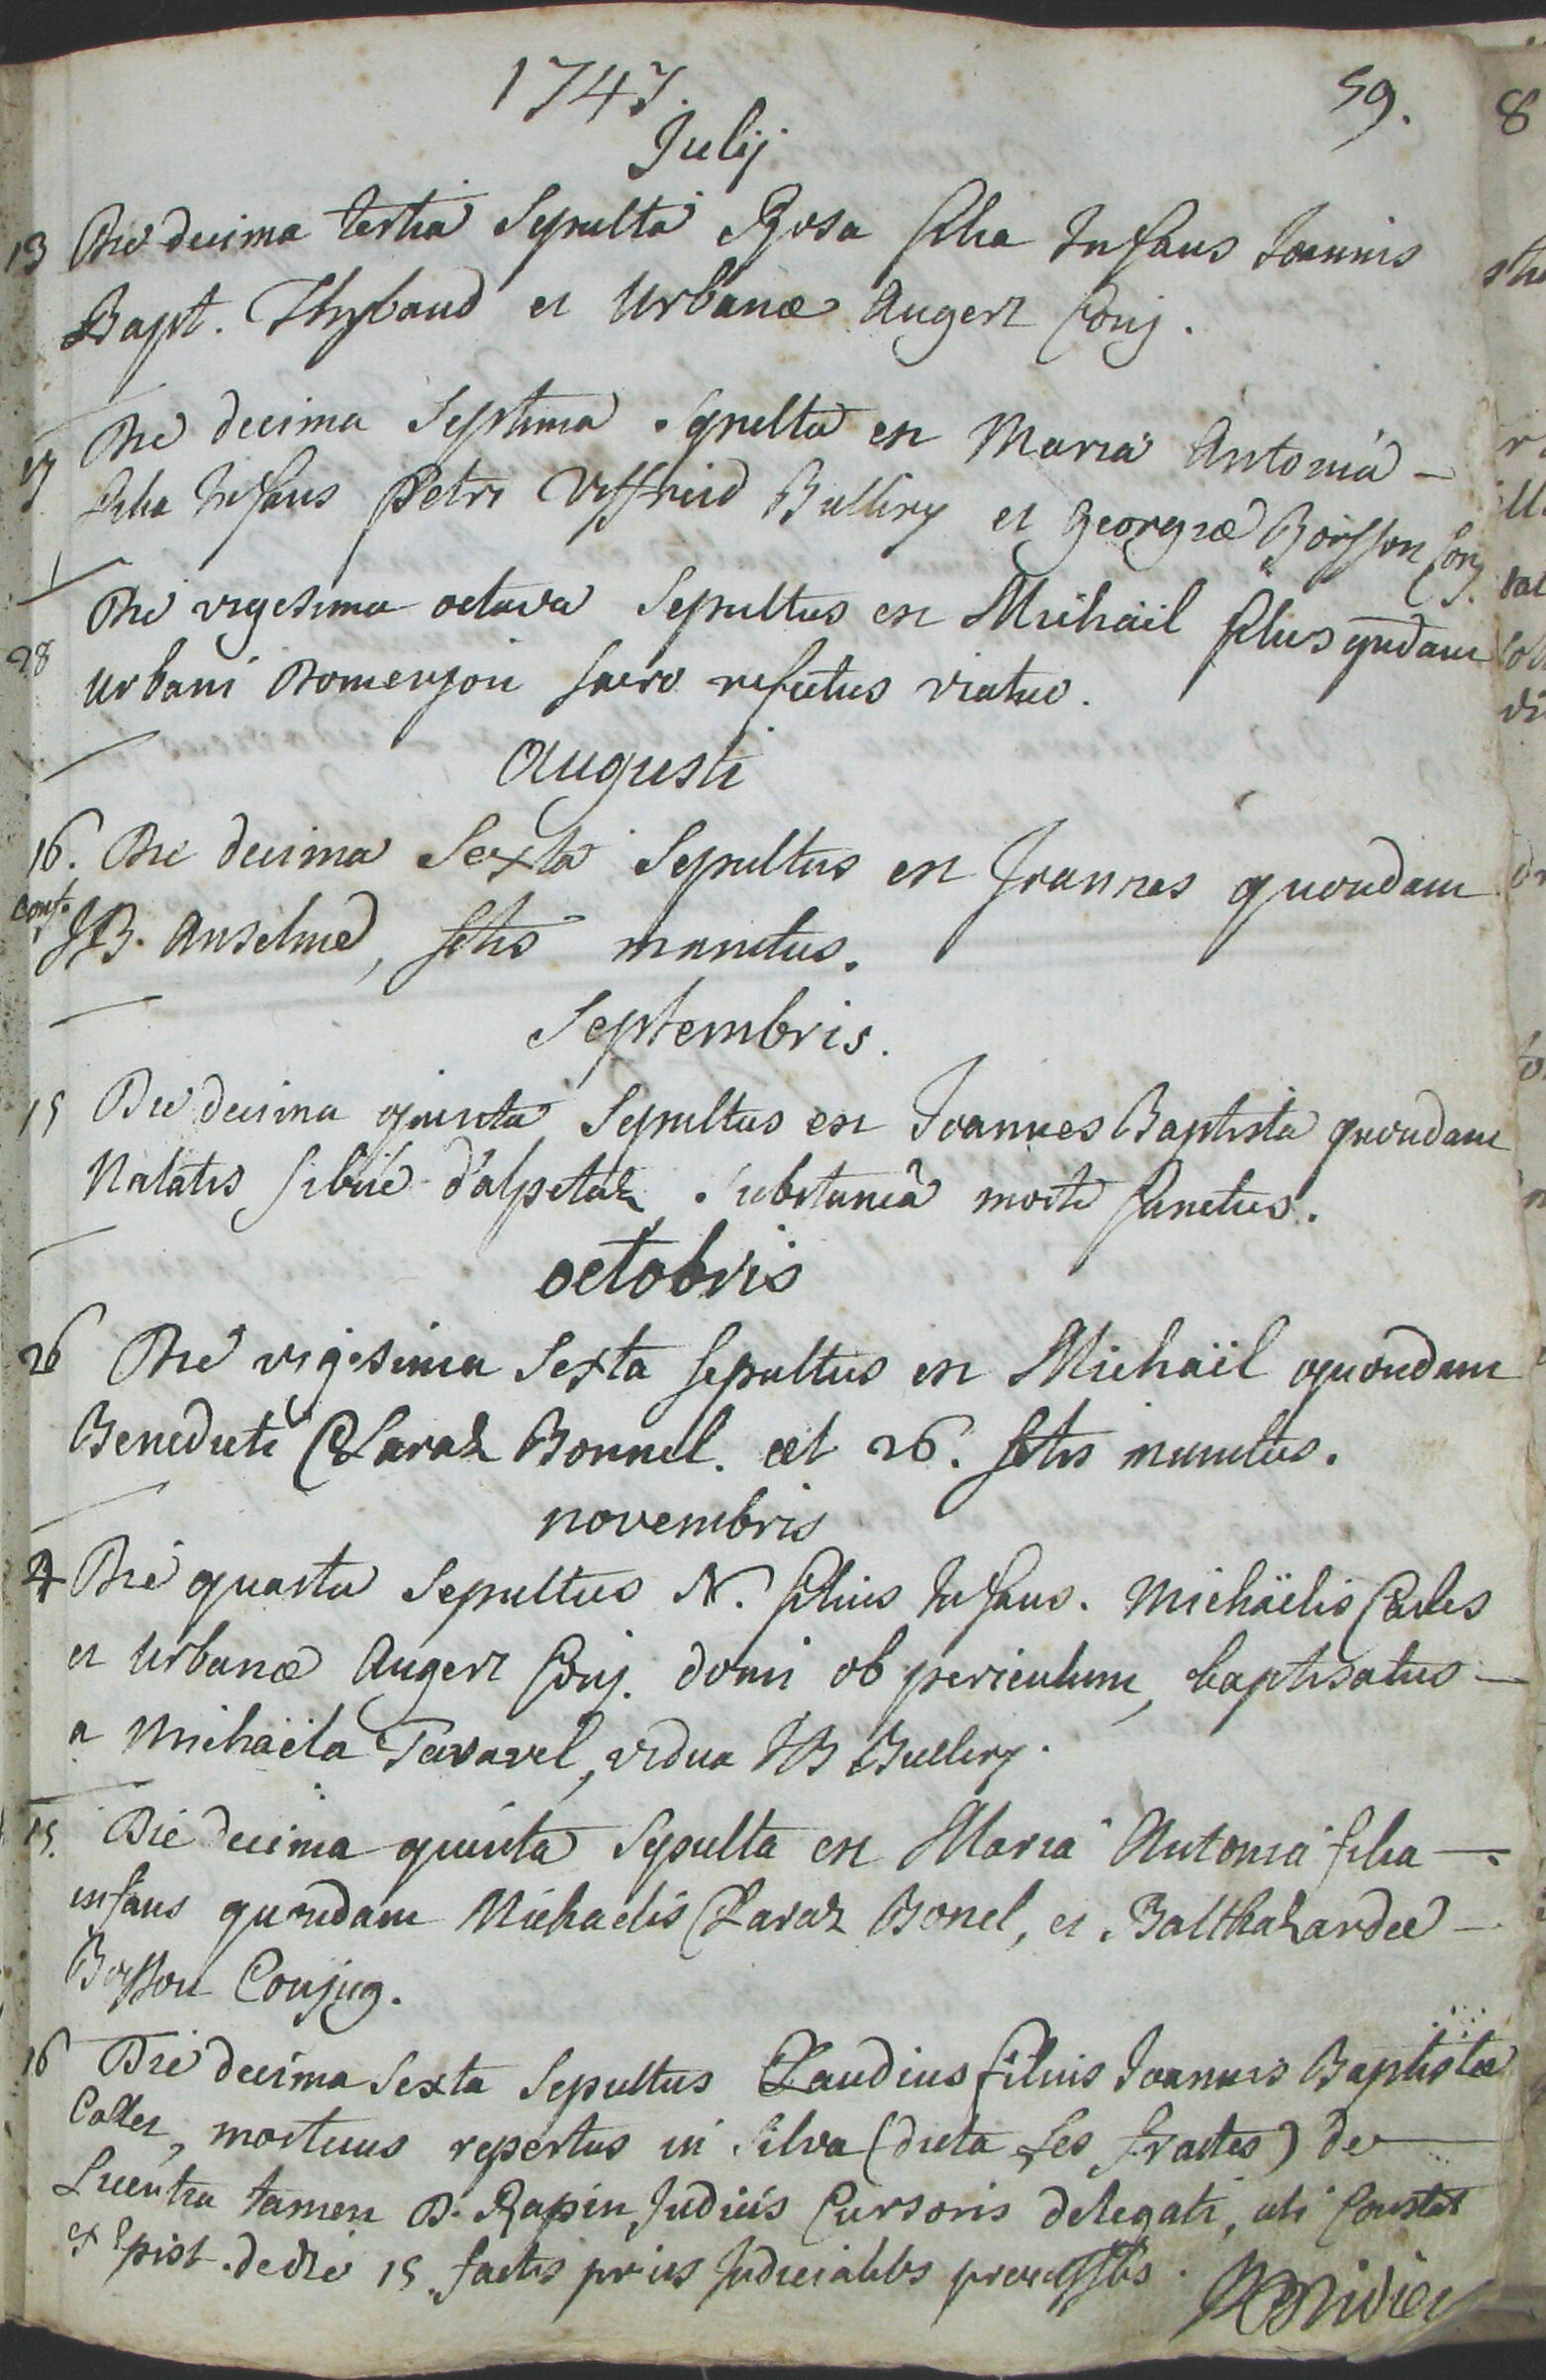 1747.
59.
Julij
13 Die decima tertia Sepulta Rosa filia Infans Joannis
Bapt. Thybaud et Urbanæ Augert Conj.
17 Die decima Septima Sepulta est Maria Antonia -
filia Infans Petri Viffrid Bullery et Georgiæ Boisson Conj.
28 Die vigesima octava Sepultus est Michaïl filius qndam
Urbani Domenjon sacro refectus viatico.
Augusti
16. Die decima Sexta Sepultus est Joannes quondam
conf. JB. Anselmed, sctis munitus.
Septembris.
15 Die decima quinta Sepultus est Joannes Baptista quondam
Natalis Sibué d'alpetaz, subitanea morte functus.
octobris
26 Die vigesima Sexta sepultus est Michaïl quondam
Benedicti Claraz Bonnel. æt 26. sctis munitus.
novembris
4 Die quarta Sepultus N. filius Infans. Michaëlis Carles
et Urbanæ Augert Conj. domi ob periculum, baptisatus -
a Michaëla Tavavel, vidua JB Bullery.
15. Die decima quinta Sepulta est Maria Antonia filia -
infans quondam Michaelis Claraz Bonel, et Balthazardæ -
Bosson Conjug.
16 Die decima Sexta Sepultus Claudius filius Joannis Baptistæ
Collet, mortuus repertus in Silva (dicta Les frattes) de
Licentia tamen D. Rapin Judicis Cursoris delegati, uti Constat
ex Epist. de die 15 factis prius Judicialibs processibs.